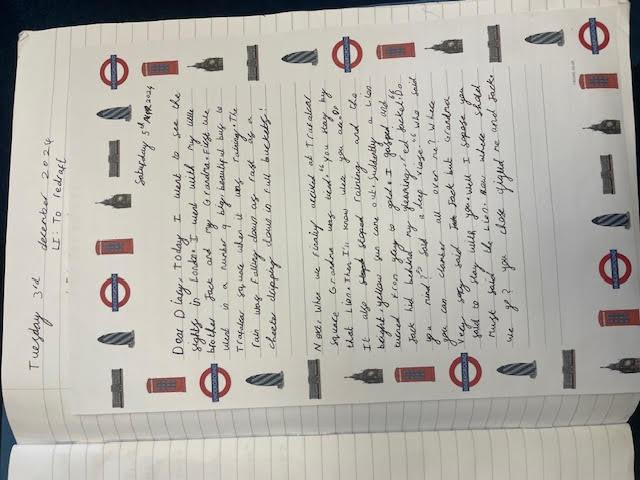 Tuesday 3rd december 2024
LI: To redraft
Saturday 5th APR 2024
Dear Diary, Today I went to see the
sights in London. I went with my little
brother Jack and my Grandma. First we
went in a number 9 big, beautiful bus to
Trafalar square when it was raining. The
rain was falling down as fast as a
cheeter dripping down in full buckets!
Next, when we finally arrived at Trafalar
square Grandma was tired. "You stay by
that Lion. Then I'll know where you are."
It also stoped raining and the
bright, yellow sun came out. Suddenly a Lion
turned from grey to gold. I gasped and
Jack hid behind my gleaming, red Jacket. "Do
you mind?" Said a deep voice. "Who said
you can clamber all over me? Where
very sorry said Jack but Grandma
said to stay with you. Well I supose you
must said the Lion. Now where shall
we go? You chose giffled me and Jack.